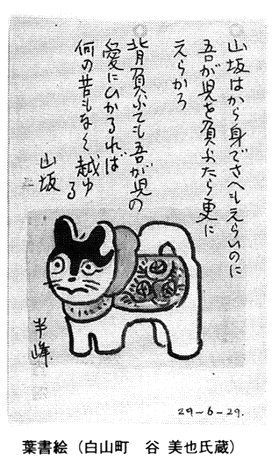 山坂はから身でさへもえらいのに
吾が児を負ふたら更に
えらかろ
背負ふても吾が児の
愛にひかるれば
何の苦もなく越ゆる
山坂
半峰
29-6-29.
葉書絵（白山町　谷 美也氏蔵）